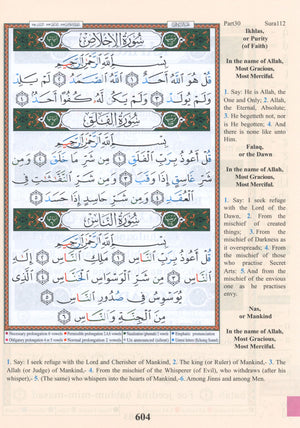 Part30 Sura112
Ikhlas,
or Purity
(of Faith)
In the name of Allah,
Most Gracious,
Most Merciful.
1. Say: He is Allah, the
One and Only; 2. Allah,
the Eternal, Absolute;
3. He begetteth not, nor
is He begotten; 4. And
there is none like unto
Him.
Falaq,
or the Dawn
In the name of Allah,
Most Gracious,
Most Merciful.
1. Say: I seek refuge
with the Lord of the
Dawn, 2. From the
mischief of created
things; 3. From the
mischief of Darkness as
it overspreads; 4. From
the mischief of those
who practise Secret
Arts; 5. And from the
mischief of the envious
one as he practises
envy.
Nas,
or Mankind
In the name of Allah,
Most Gracious,
Most Merciful.
سُورَةُ الإِخْلَاصِ
بِسْمِ ٱللَّهِ ٱلرَّحْمَٰنِ ٱلرَّحِيمِ
قُلْ هُوَ ٱللَّهُ أَحَدٌ ١ ٱللَّهُ ٱلصَّمَدُ ٢ لَمْ يَلِدْ
وَلَمْ يُولَدْ ٣ وَلَمْ يَكُن لَّهُۥ كُفُوًا أَحَدٌۢ ٤
سُورَةُ الْفَلَقِ
بِسْمِ ٱللَّهِ ٱلرَّحْمَٰنِ ٱلرَّحِيمِ
قُلْ أَعُوذُ بِرَبِّ ٱلْفَلَقِ ١ مِن شَرِّ مَا خَلَقَ ٢ وَمِن
شَرِّ غَاسِقٍ إِذَا وَقَبَ ٣ وَمِن شَرِّ ٱلنَّفَّٰثَٰتِ فِى
ٱلْعُقَدِ ٤ وَمِن شَرِّ حَاسِدٍ إِذَا حَسَدَ ٥
سُورَةُ النَّاسِ
بِسْمِ ٱللَّهِ ٱلرَّحْمَٰنِ ٱلرَّحِيمِ
قُلْ أَعُوذُ بِرَبِّ ٱلنَّاسِ ١ مَلِكِ ٱلنَّاسِ ٢
إِلَٰهِ ٱلنَّاسِ ٣ مِن شَرِّ ٱلْوَسْوَاسِ ٱلْخَنَّاسِ ٤ ٱلَّذِى
يُوَسْوِسُ فِى صُدُورِ ٱلنَّاسِ ٥
مِنَ ٱلْجِنَّةِ وَٱلنَّاسِ ٦
1. Say: I seek refuge with the Lord and Cherisher of Mankind, 2. The king (or Ruler) of Mankind,- 3. The
Allah (or Judge) of Mankind,- 4. From the mischief of the Whisperer (of Evil), who withdraws (after his
whisper),- 5. (The same) who whispers into the hearts of Mankind,-6. Among Jinns and among Men.
604